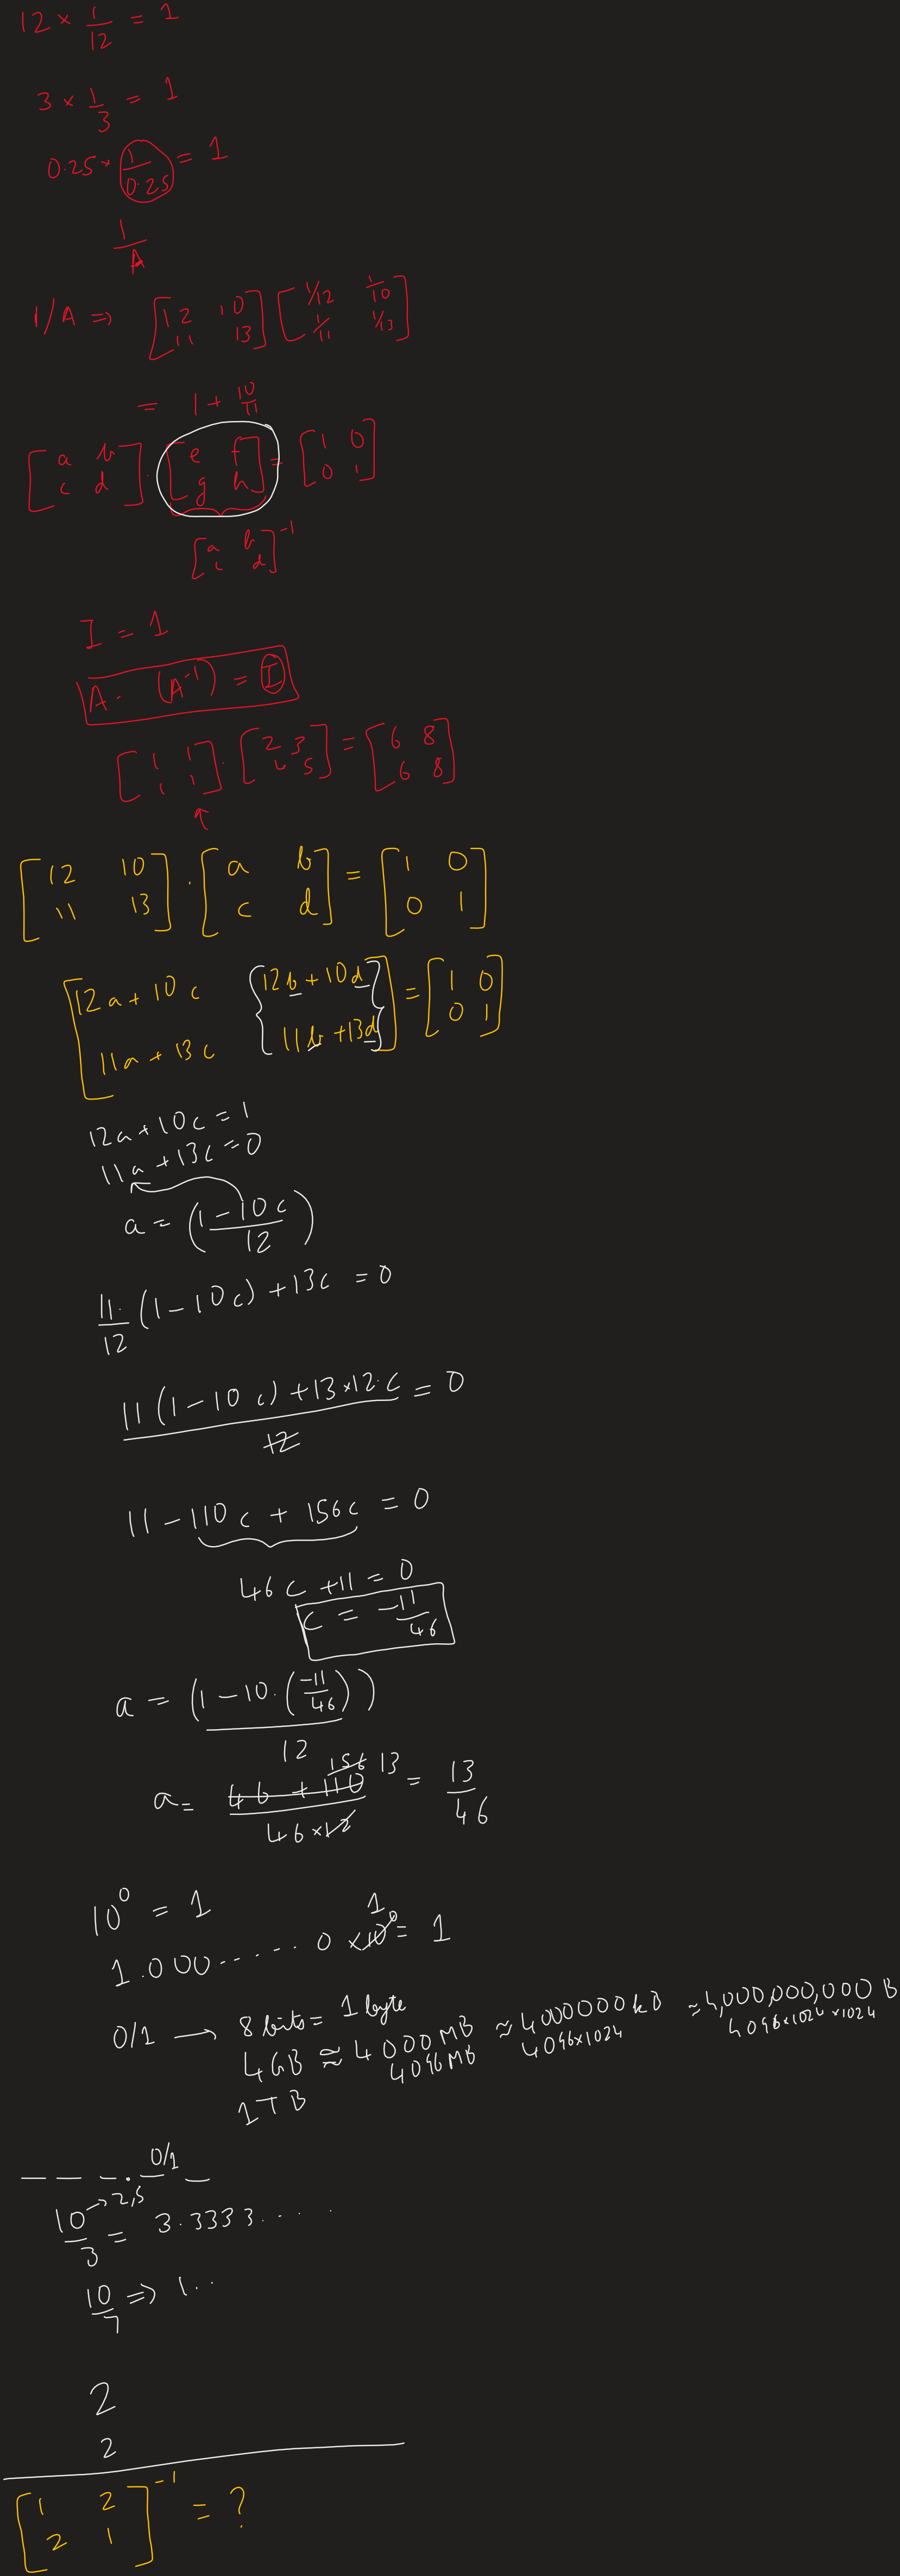 12 × 1/12 = 1
3 × 1/3 = 1
0.25 × 1/0.25 = 1
1/A
1/A ⇒ [12 10; 11 13] [1/12 1/10; 1/11 1/13]
= 1 + 10/11
[a b; c d] · [e f; g h] = [1 0; 0 1]
[a b; c d]^-1
I = 1
A · (A^-1) = I
[1 1; 1 1] · [2 3; 4 5] = [6 8; 6 8]
↑
[12 10; 11 13] · [a b; c d] = [1 0; 0 1]
[12a + 10c {12b + 10d; 11a + 13c 11b + 13d}] = [1 0; 0 1]
12a + 10c = 1
11a + 13c = 0
a = (1 - 10c / 12)
11·/12 (1 - 10c) + 13c = 0
11 (1 - 10c) + 13 × 12·c / 12 = 0
11 - 110c + 156c = 0
46c + 11 = 0
c = -11/46
a = (1 - 10·(-11/46)) / 12
156 13
a = 46 + 110 / 46×12 = 13/46
10^0 = 1
1
1.000 ...... 0 ×10^0 = 1
0/1 → 8 bits = 1 byte
4GB ≈ 4000MB ≈ 4000000kB ≈ 4,000,000,000 B
4096MB 4096×1024 4096×1024×1024
1TB
0/1
_ _ _ . _ _
10/3 = 3.3333....
→ 2,5
10/7 ⇒ 1..
2
2
[1 2; 2 1]^-1 = ?